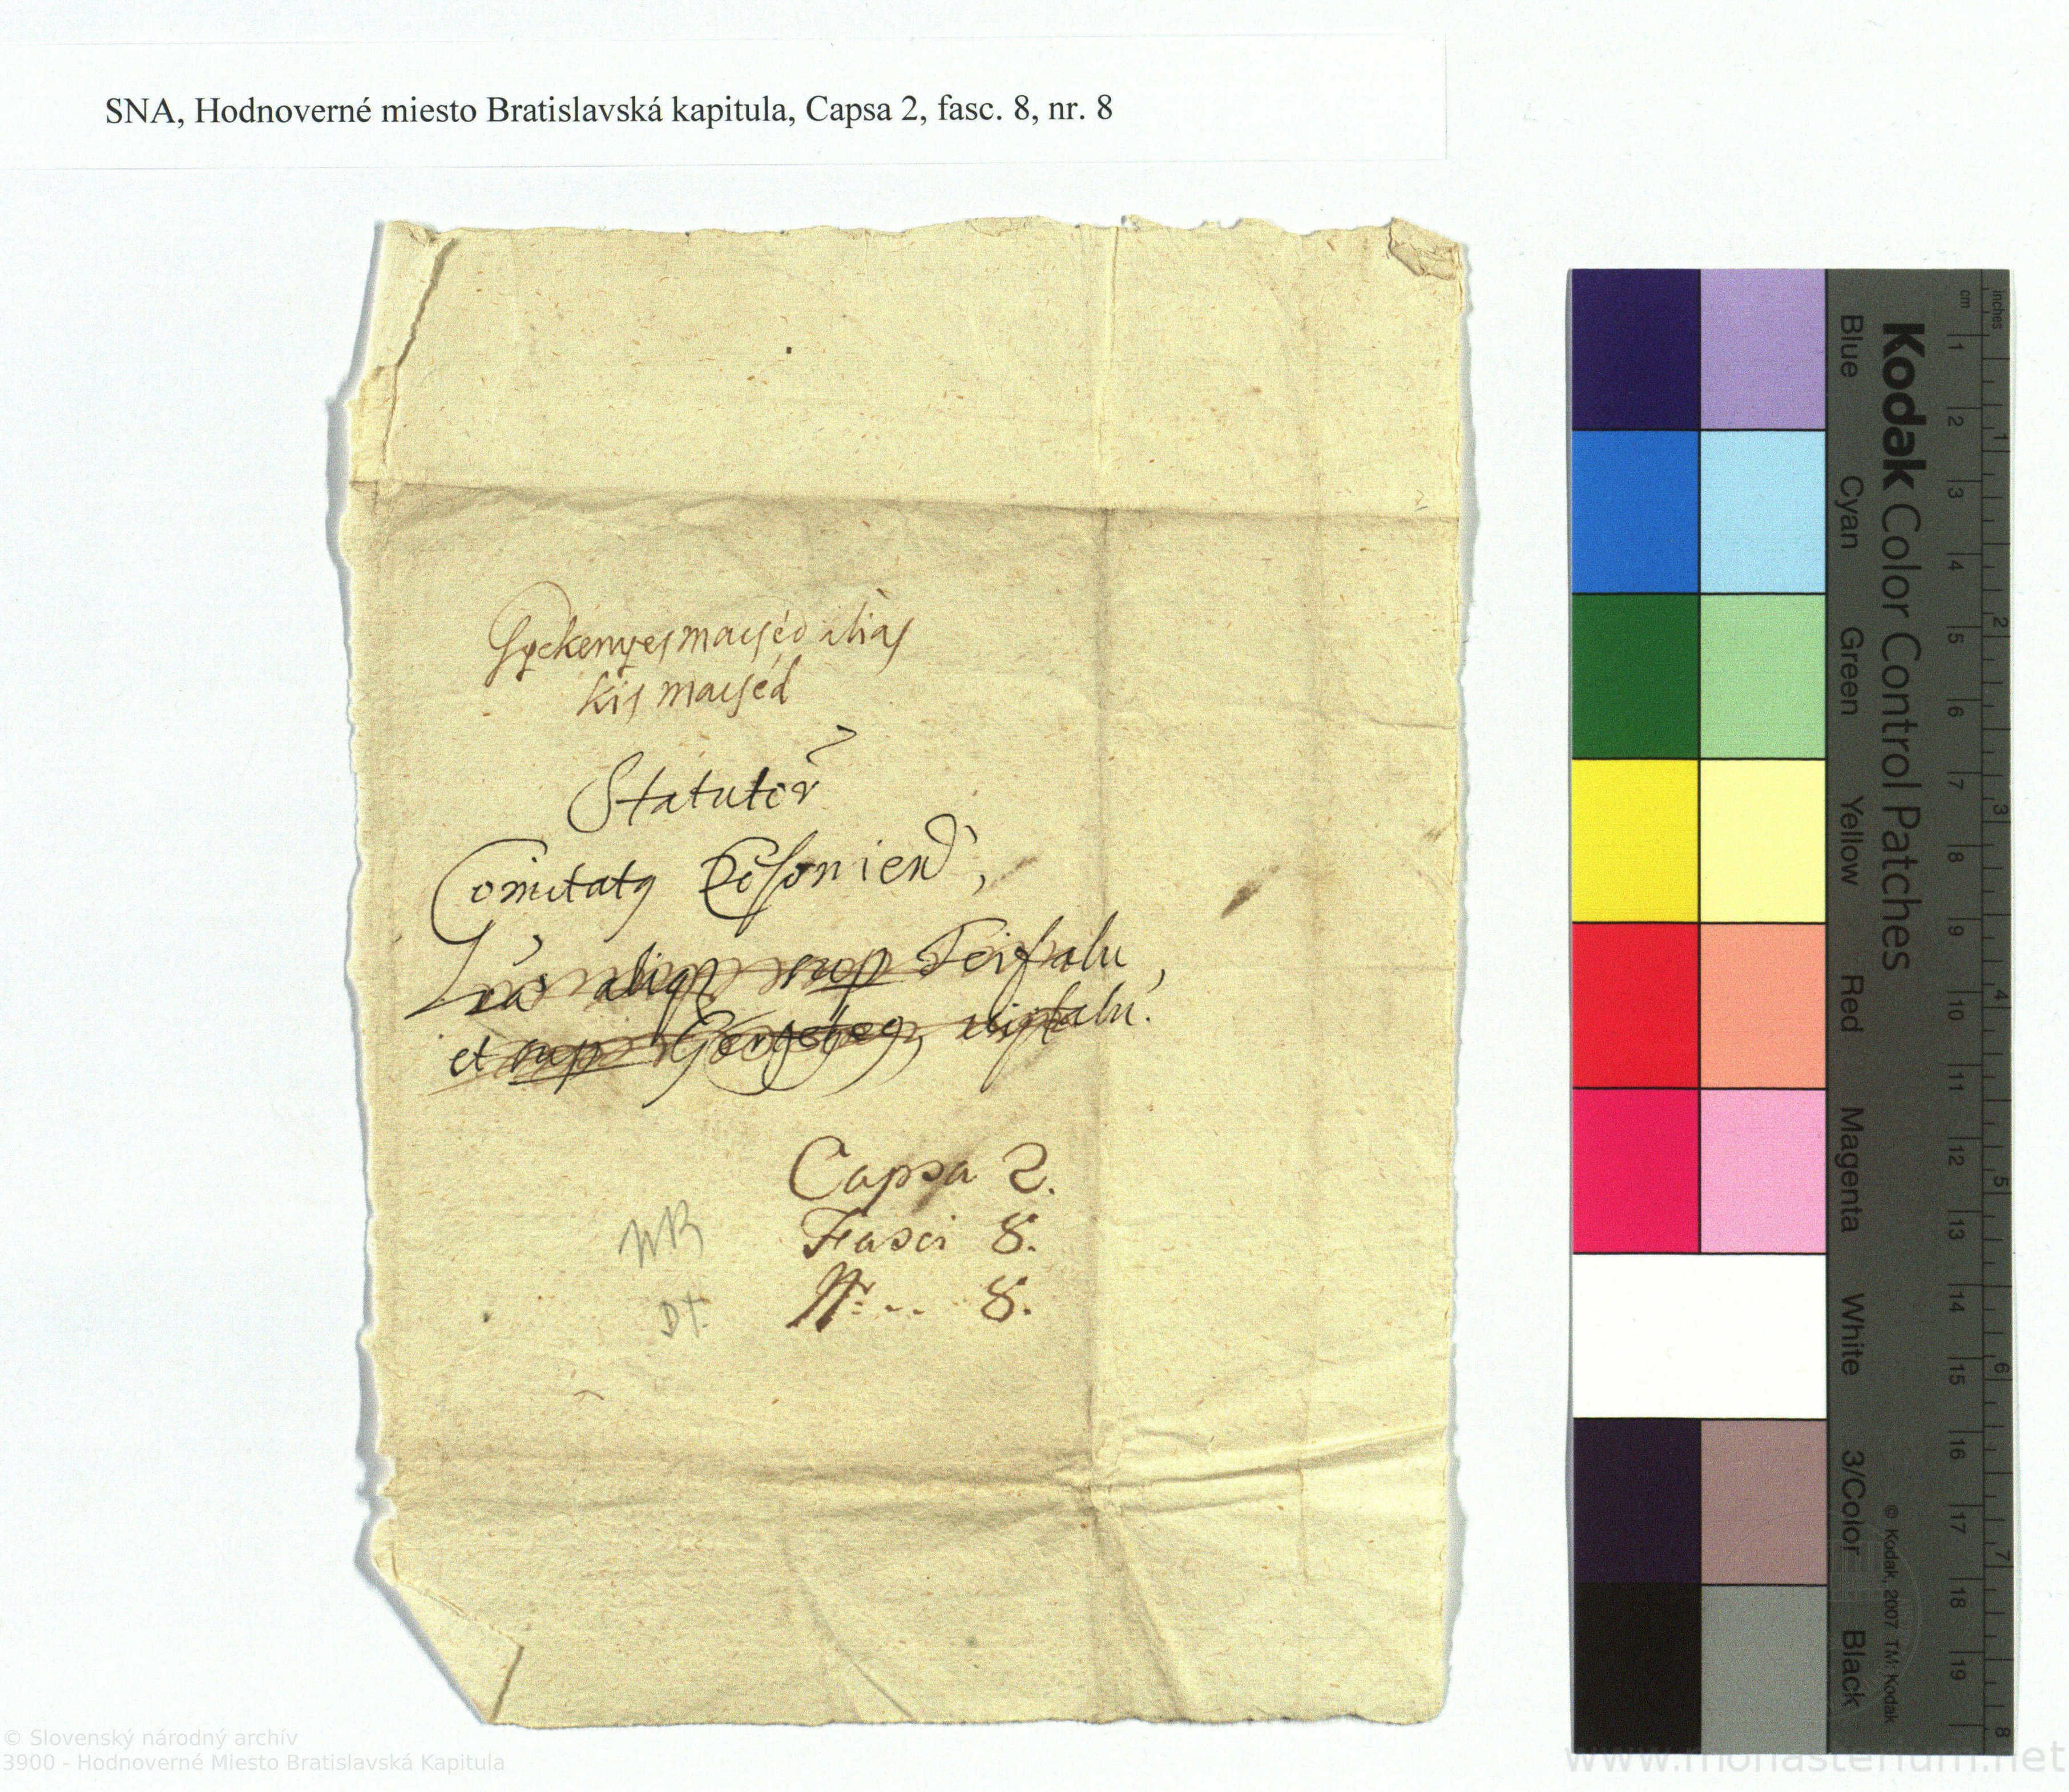 SNA, Hodnoverné miesto Bratislavská kapitula, Capsa 2, fasc. 8, nr. 8
Gyekenyes macséd alias
kis macséd
Statutor
Comitatq Posonien,
aliqz sup Peifalu,
et sup
Capsa 2.
Fasci 8.
Nr: .. 8.
NB
Dt.
Kodak Color Control Patches
Blue Cyan Green Yellow Red Magenta White 3/Color Black
© Kodak, 2007 TM: Kodak
inches 1 2 3 4 5 6 7 8
cm 1 2 3 4 5 6 7 8 9 10 11 12 13 14 15 16 17 18 19
© Slovenský národný archív
3900 - Hodnoverné Miesto Bratislavská Kapitula
www.monasterium.net